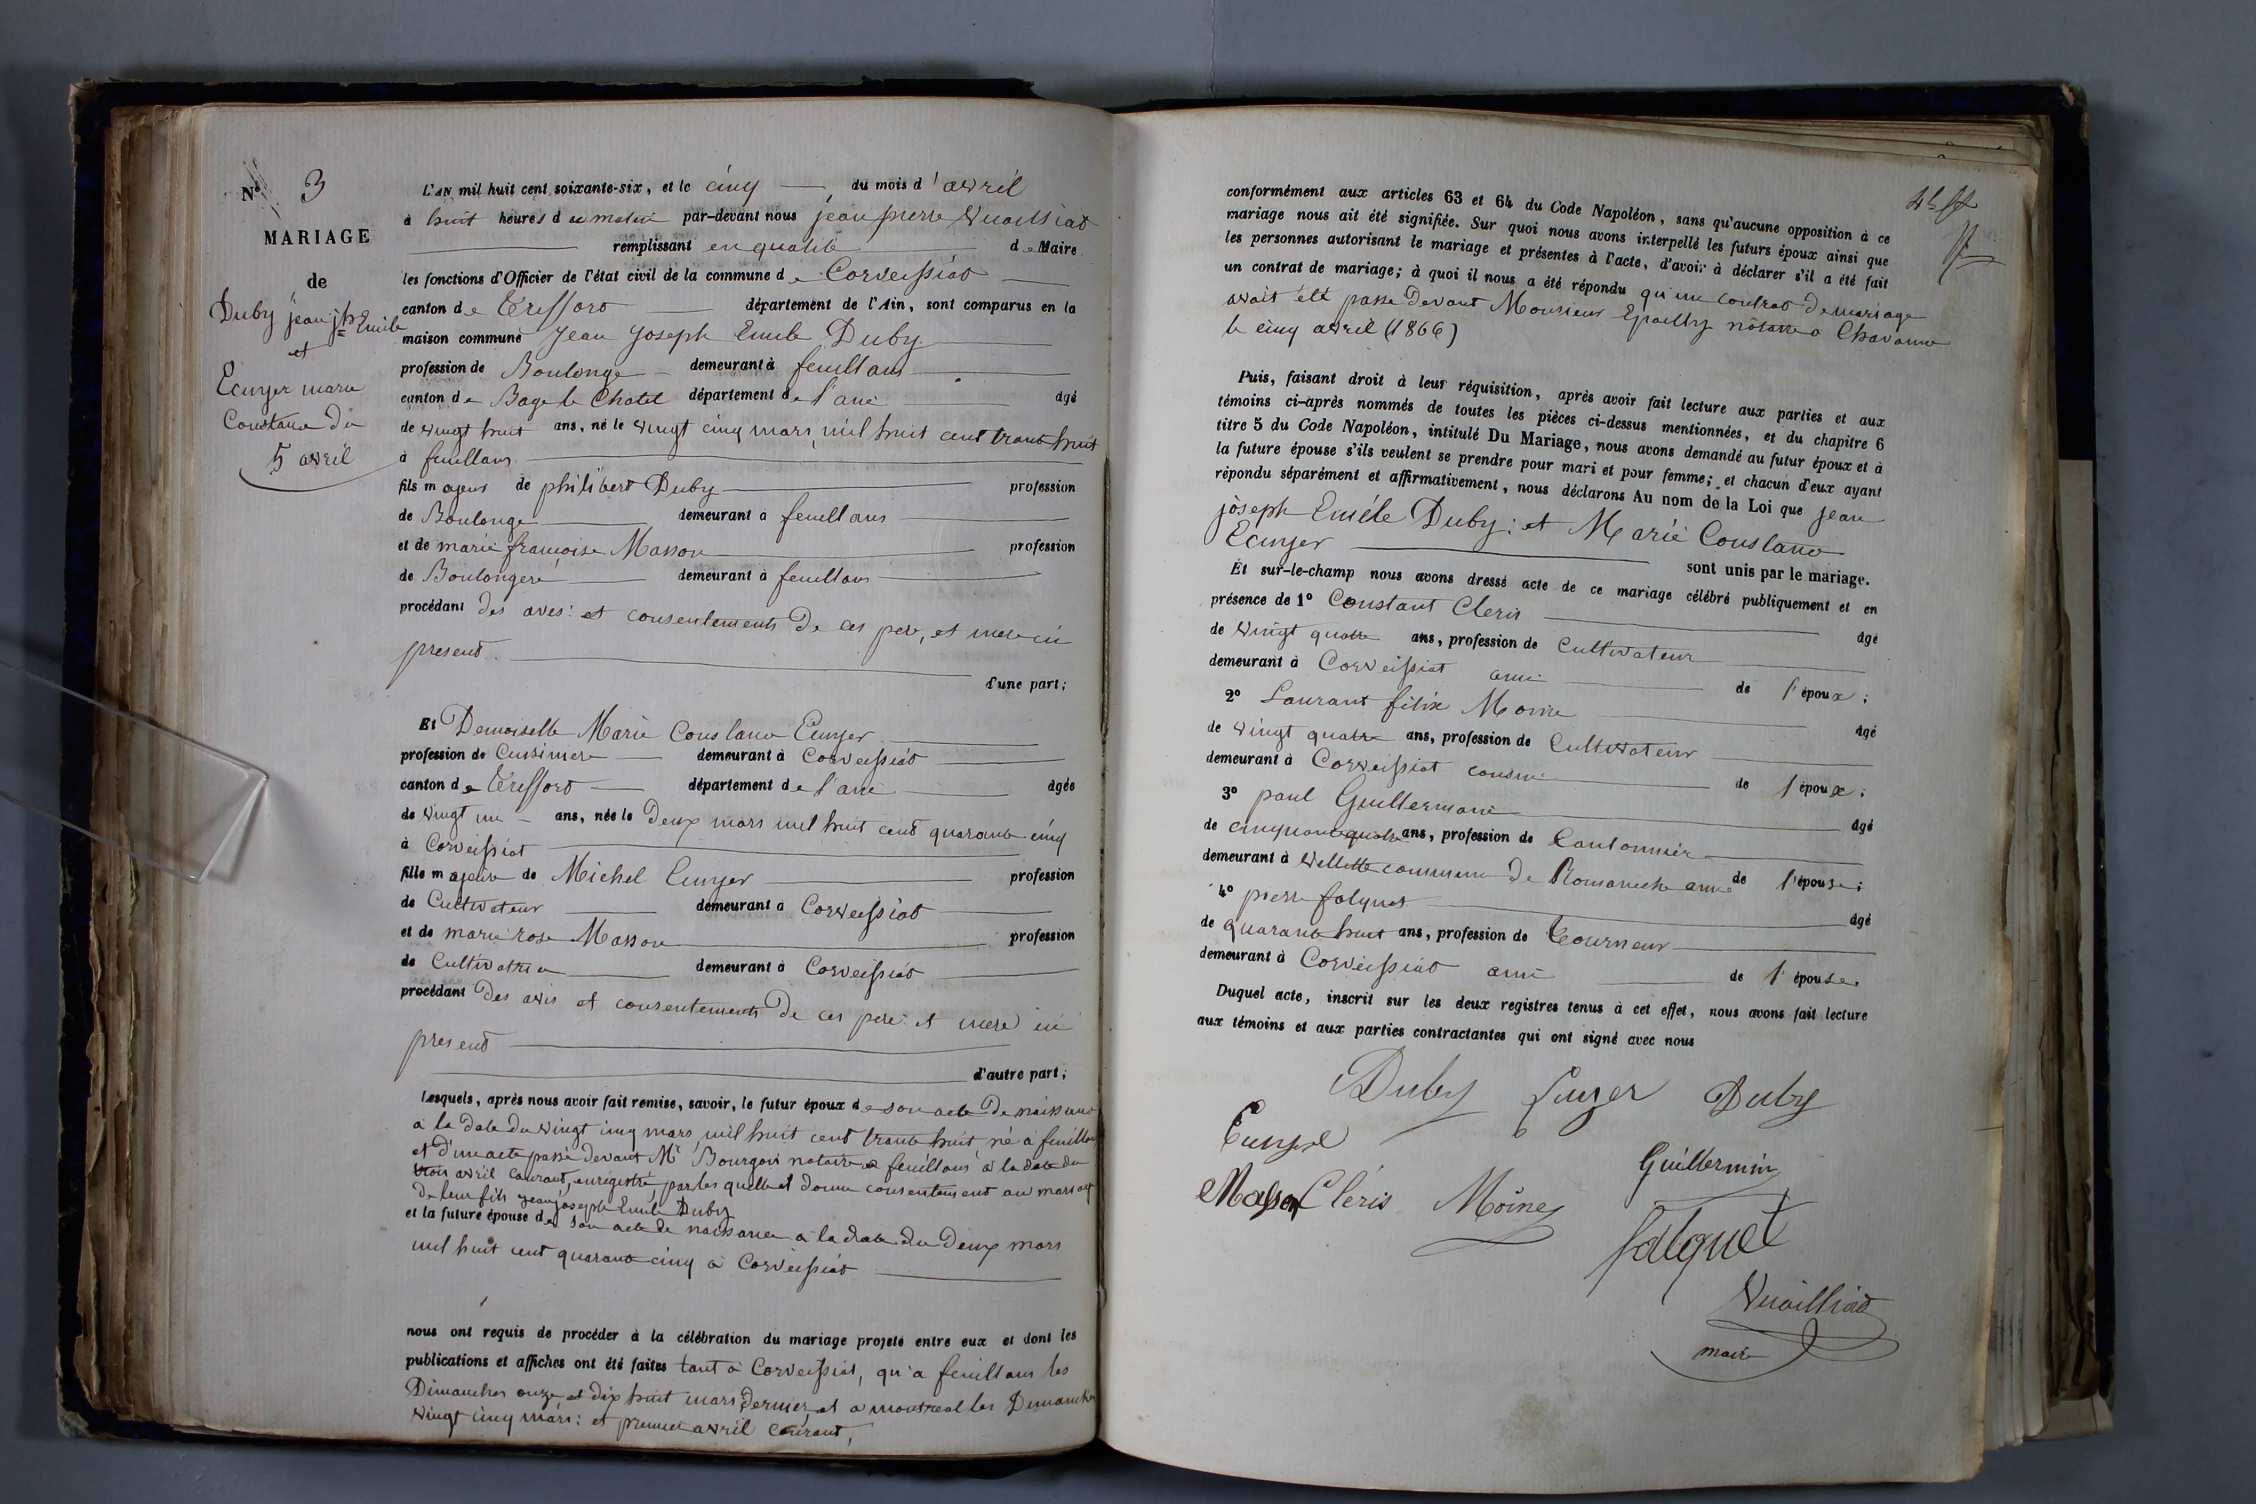 N° 3
MARIAGE
de
Duby jean jph Emile
et
Ecuyer marie
Constance du
5 avril
L'AN mil huit cent soixante-six, et le cinq du mois d'avril
à huit heures d u matin par-devant nous jean pierre Vuailliat
remplissant en qualité de Maire
les fonctions d'Officier de l'état civil de la commune de Corveissiat
canton de Treffort département de l'Ain, sont comparus en la
maison commune Jean Joseph Emile Duby
profession de Boulonge demeurant à feuillans
canton de Bage le Chatel département de l'ain âgé
de vingt huit ans, né le vingt cinq mars mil huit cent trente huit
à feuillans
fils majeur de philibert Duby profession
de Boulonge demeurant à feuillans
et de marie françoise Masson profession
de Boulongere demeurant à feuillans
procédant des aves: et consentements De ces pere, et mere ici
present
d'une part;
Et Demoiselle Marie Constance Ecuyer
profession de Cuisiniere demeurant à Corveissiat
canton de Treffort département de l'ain âgée
de vingt un ans, née le Deux mars mil huit cent quarante cinq
à Corveissiat
fille majeure de Michel Ecuyer profession
de Cultivateur demeurant à Corveissiat
et de marie rose Masson profession
de Cultivatrice demeurant à Corveissiat
procédant Des avis et consentements De ces pere et mere ici
present
d'autre part;
Lesquels, après nous avoir fait remise, savoir, le futur époux de son acte De naissance
a la Date du vingt cinq mars mil huit cent trente huit né à feuillans
et d'un acte passé devant Mr Bourgois notaire a feuillans à la date du
trois avril courant, enregistré par les quelle et donne consentement au mariage
De leur fils jean joseph Emile Duby
et la future épouse de son acte de naissance à la date du Deux mars
mil huit cent quarante cinq à Corveissiat
nous ont requis de procéder à la célébration du mariage projeté entre eux et dont les
publications et affiches ont été faites tant à Corveissiat, qu'a feuillans les
Dimanches onze et dix huit mars Dernier et a montreal les Dimanches
vingt cinq mars: et premier avril courant,
conformément aux articles 63 et 64 du Code Napoléon, sans qu'aucune opposition à ce
mariage nous ait été signifiée. Sur quoi nous avons interpellé les futurs époux ainsi que
les personnes autorisant le mariage et présentes à l'acte, d'avoir à déclarer s'il a été fait
un contrat de mariage; à quoi il nous a été répondu qu'un contrat De mariage
avait été passé Devant Monsieur Epailly notaire a Chavanne
le cinq avril (1866)
Puis, faisant droit à leur réquisition, après avoir fait lecture aux parties et aux
témoins ci-après nommés de toutes les pièces ci-dessus mentionnées, et du chapitre 6
titre 5 du Code Napoléon, intitulé Du Mariage, nous avons demandé au futur époux et à
la future épouse s'ils veulent se prendre pour mari et pour femme; et chacun d'eux ayant
répondu séparément et affirmativement, nous déclarons Au nom de la Loi que jean
joseph Emile Duby: et Marie Constance
Ecuyer
sont unis par le mariage.
Et sur-le-champ nous avons dressé acte de ce mariage célébré publiquement et en
présence de 1° Constant Cleris âgé
de vingt quatre ans, profession de Cultivateur
demeurant à Corveissiat ami de l'époux;
2° Laurant félix Moine âgé
de vingt quatre ans, profession de Cultivateur
demeurant à Corveissiat cousin de l'époux;
3° paul Guillermin âgé
de cinquante quatre ans, profession de Cantonnier
demeurant à Vellette commune De Romaneche ami de l'épouse;
4° pierre falquet âgé
de quarante huit ans, profession de Tourneur
demeurant à Corveissiat ami de l'épouse.
Duquel acte, inscrit sur les deux registres tenus à cet effet, nous avons fait lecture
aux témoins et aux parties contractantes qui ont signé avec nous
Duby Duby
Guillermin
Masson Cléris Moine
falquet
Vuailliat
maire